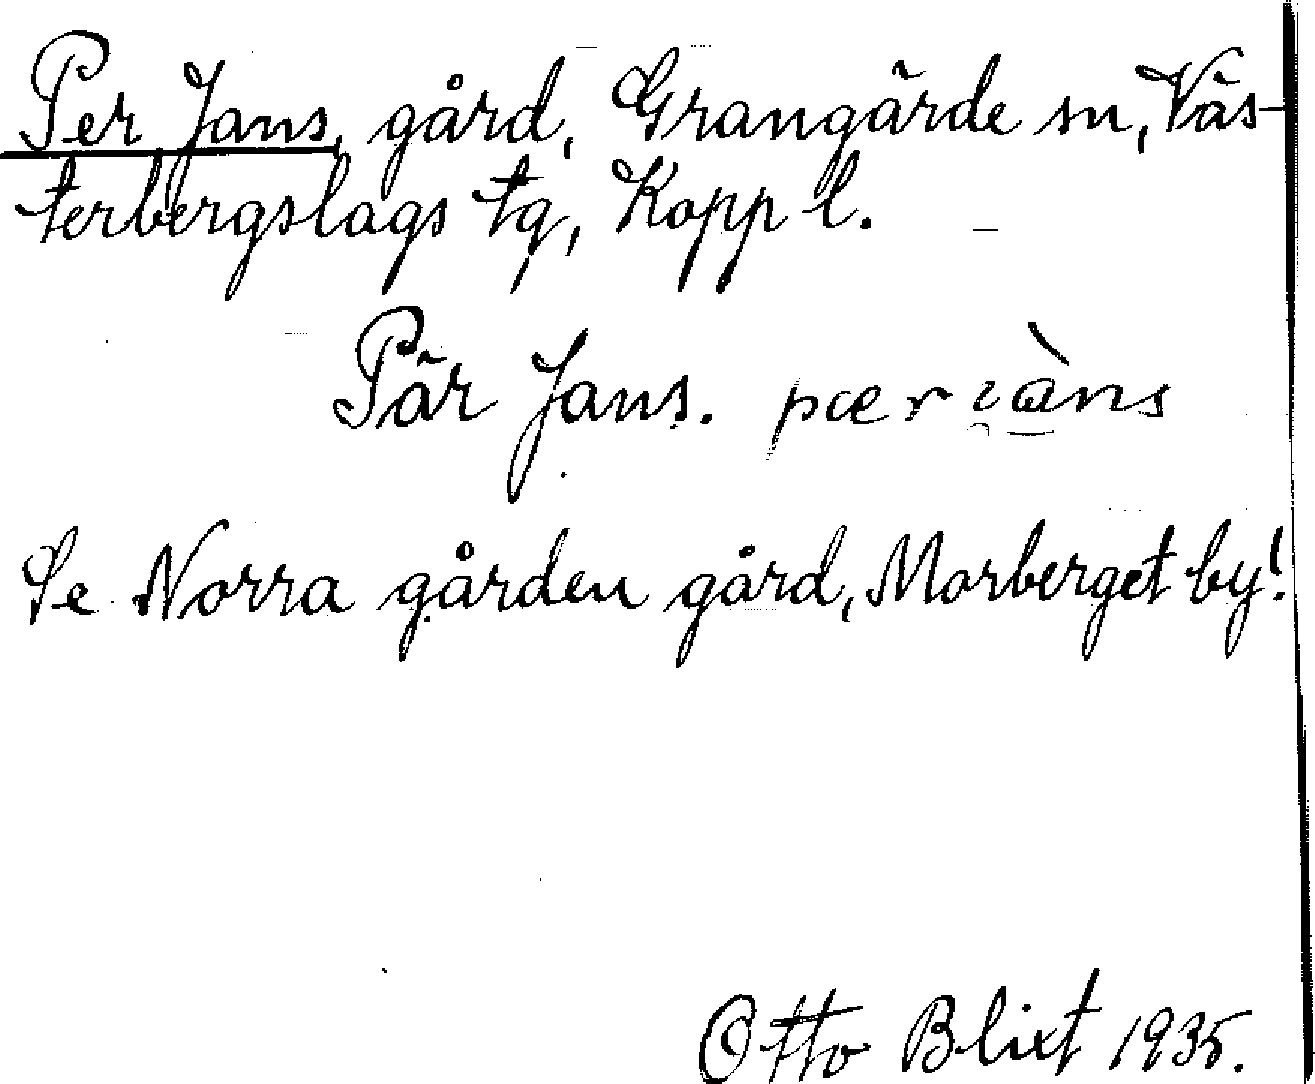 Per Jans, gård, Grangärde sn, Väs-
terbergslags tg, Kopp l.
Pär Jans.
Se Norra gården gård, Morberget by!
Otto Blixt 1935.